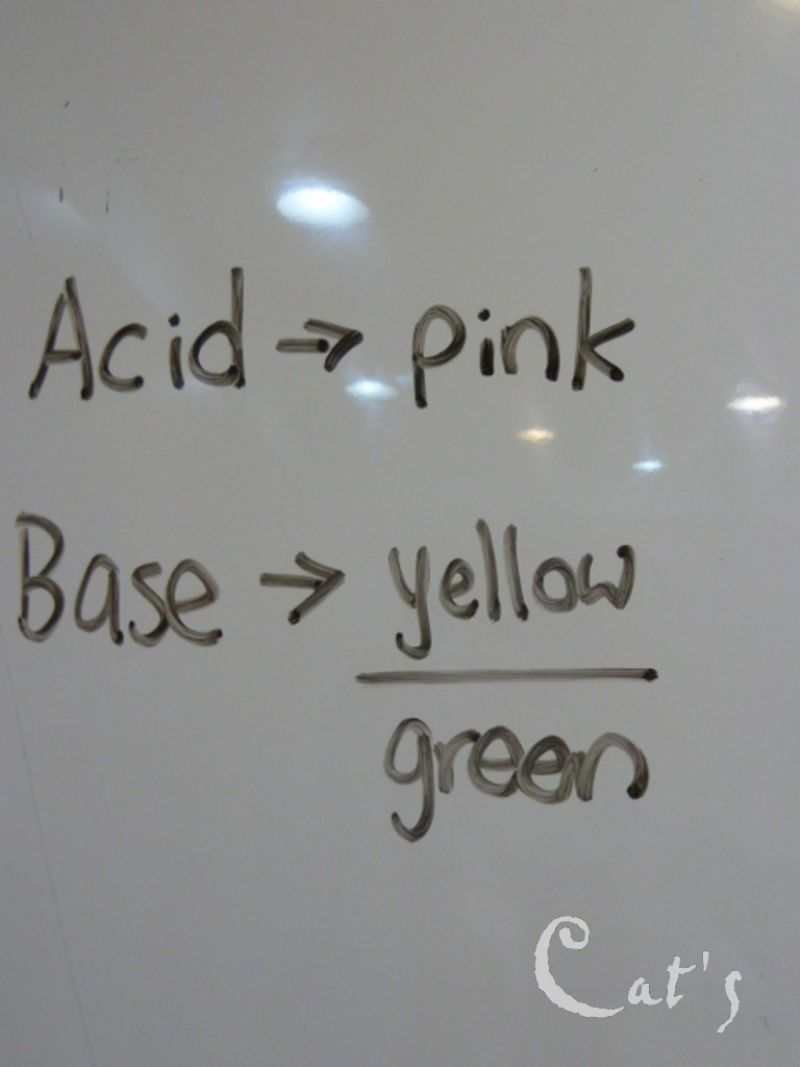 Acid → pink
Base → yellow
green
Cat's